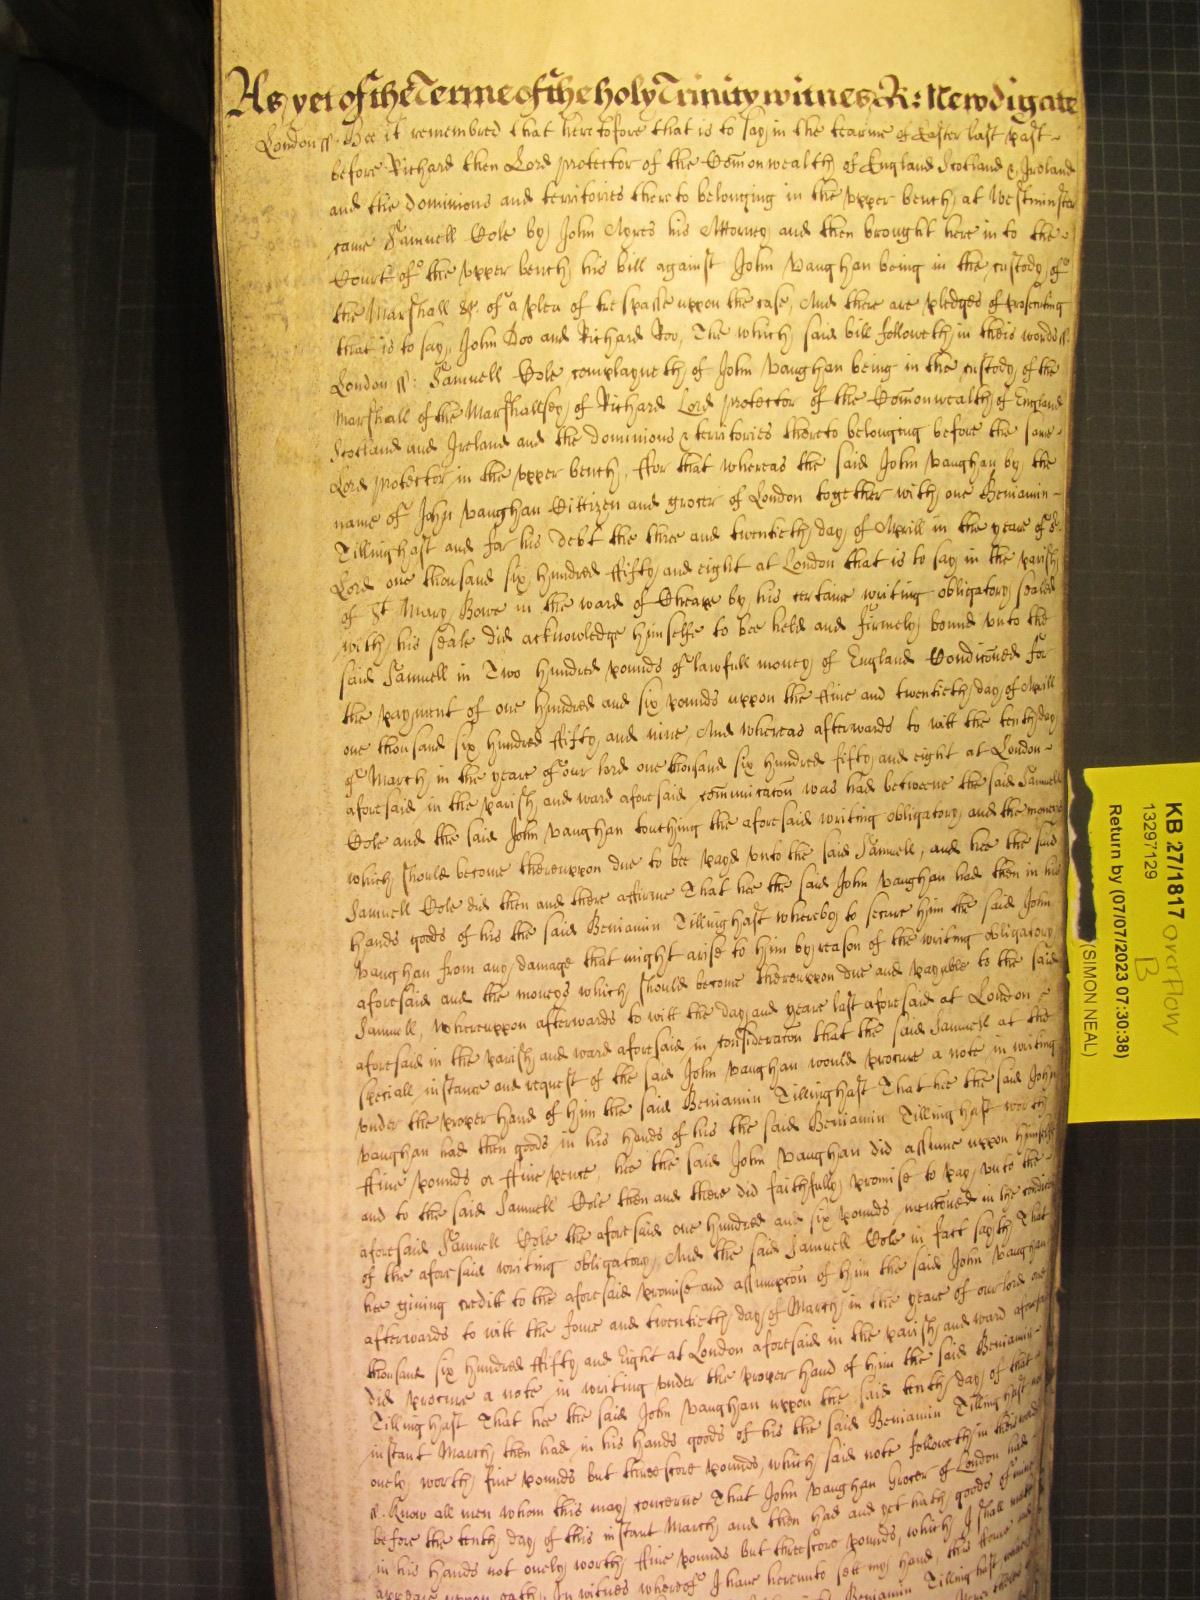 As yet of the Terme of the holy Trinity witnes R: Newdigate
London ss. Bee it remembred that heretofore that is to say in the tearme of Easter last past
before Richard then Lord protector of the Com̄onwealth of England Scotland & Ireland
and the dominions and territories thereto belonging in the upper bench at Westminster
came Samuell Cole by John Ayres his Attorney and then brought here in to the
Court of the upper bench his bill against John Vaughan being in the custody of
the Marshall &c. of a plea of trespasse uppon the case, And there are pledges of prosecuting
that is to say, John Doo and Richard Roo, The which said bill followeth in theis words ss.
London ss: Samuell Cole complayneth of John Vaughan being in the custody of the
Marshall of the Marshallsey of Richard Lord protector of the Com̄onwealth of England
Scotland and Ireland and the dominions & territories thereto belonging before the same
Lord protector in the upper bench, ffor that whereas the said John Vaughan by the
name of John Vaughan Cittizen and grocer of London together with one Beniamin
Tillinghast and for his debt the three and twentieth day of Aprill in the yeare of or
Lord one thousand six hundred ffifty and eight at London that is to say in the parish
of St Mary Bowe in the ward of Cheape by his certaine writing obligatory sealed
with his seale did acknowledge himselfe to bee held and firmely bound unto the
said Samuell in Two hundred pounds of lawfull money of England Condic̄oned for
the payment of one hundred and six pounds uppon the ffive and twentieth day of Aprill
one thousand six hundred ffifty and nine, And whereas afterwards to witt the tenth day
of March in the yeare of our lord one thousand six hundred fifty and eight at London
aforesaid in the parish and ward aforesaid com̄unicac̄on was had betweene the said Samuell
Cole and the said John Vaughan touching the aforesaid writing obligatory and the moneys
which should become thereuppon due to bee payd unto the said Samuell, and hee the said
Samuell Cole did then and there affirme That hee the said John Vaughan had then in his
hands goods of his the said Beniamin Tillinghast whereby to secure him the said John
Vaughan from any damage that might arise to him by reason of the writing obligatory
aforesaid and the moneys which should become thereuppon due and payable to the said
Samuell, Whereuppon afterwards to witt the day and yeare last aforesaid at London
aforesaid in the parish and ward aforesaid in considerac̄on that the said Samuell at the
speciall instance and request of the said John Vaughan would procure a note in writing
under the proper hand of him the said Beniamin Tillinghast That hee the said John
Vaughan had then goods in his hands of his the said Beniamin Tillinghast worth
ffive pounds or ffive pence, hee the said John Vaughan did assume uppon himselfe
and to the said Samuell Cole then and there did faithfully promise to pay unto the
aforesaid Samuell Cole the aforesaid one hundred and six pounds menc̄oned in the condic̄on
of the aforesaid writing obligatory, And the said Samuell Cole in fact sayth That
hee giving credit to the aforesaid promise and assumpc̄on of him the said John Vaughan
afterwards to witt the foure and twentieth day of March in the yeare of our lord one
thousand six hundred ffifty and Eight at London aforesaid in the parish and ward aforesaid
did procure a note in writing under the proper hand of him the said Beniamin
Tillinghast That hee the said John Vaughan uppon the said tenth day of that
instant March then had in his hands goods of his the said Beniamin Tillinghast not
onely worth five pounds but threescore pounds, which said note followeth in theis words
ss. Know all men whom this may concerne That John Vaughan Grocer of London had
before the tenth day of this instant March and then had and yet hath goods of mine
in his hands not onely worth ffive pounds but threescore pounds, which I shall make
appeare uppon oath, In witnes whereof I have hereunto sett my hand, this
Beniamin Tillinghast
KB 27/1817 overflow
13297129 B
Return by (07/07/2023 07:30:38)
(SIMON NEAL)